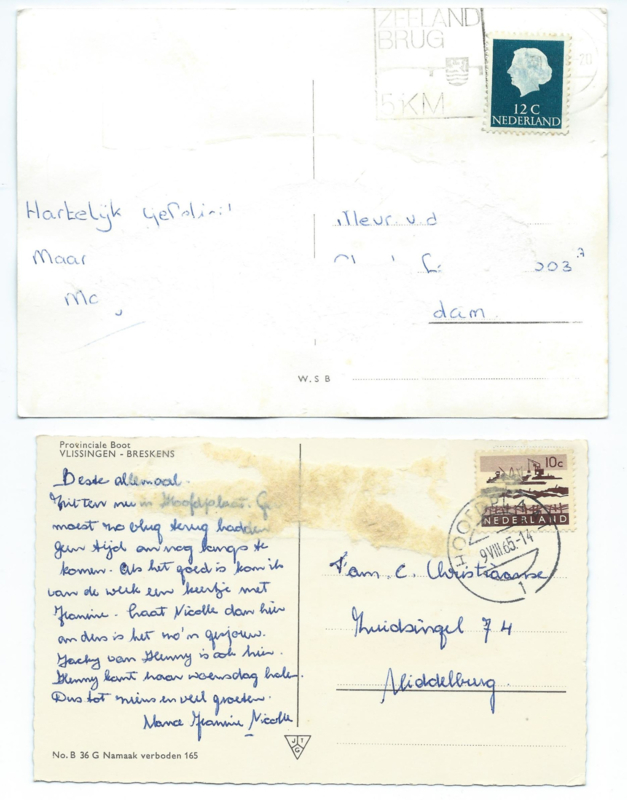 ZEELAND
BRUG
5 KM
12 C
NEDERLAND
Hartelijk
Mevr. v.d
Maar
003
dam.
W.S B
Provinciale Boot
VLISSINGEN - BRESKENS
10c
NEDERLAND
9 VIII 65-14
1
Beste allemaal.
Zitten nu in Hoofdplaat.
moest zo vlug terug hadden
geen tijd om nog langs te
komen. Als het goed is kom ik
van de werk een keertje met
Jeannie. Laat Nicolle dan hier
anders is het zo'n gesjouw.
Jacky van Henny is ook hier.
Henny komt haar woensdag halen.
Dus tot ziens en veel groeten.
Jeannie Nicolle
Fam. C. Christiaanse
Zuidsingel 74
Middelburg
No. B 36 G Namaak verboden 165
J T
G